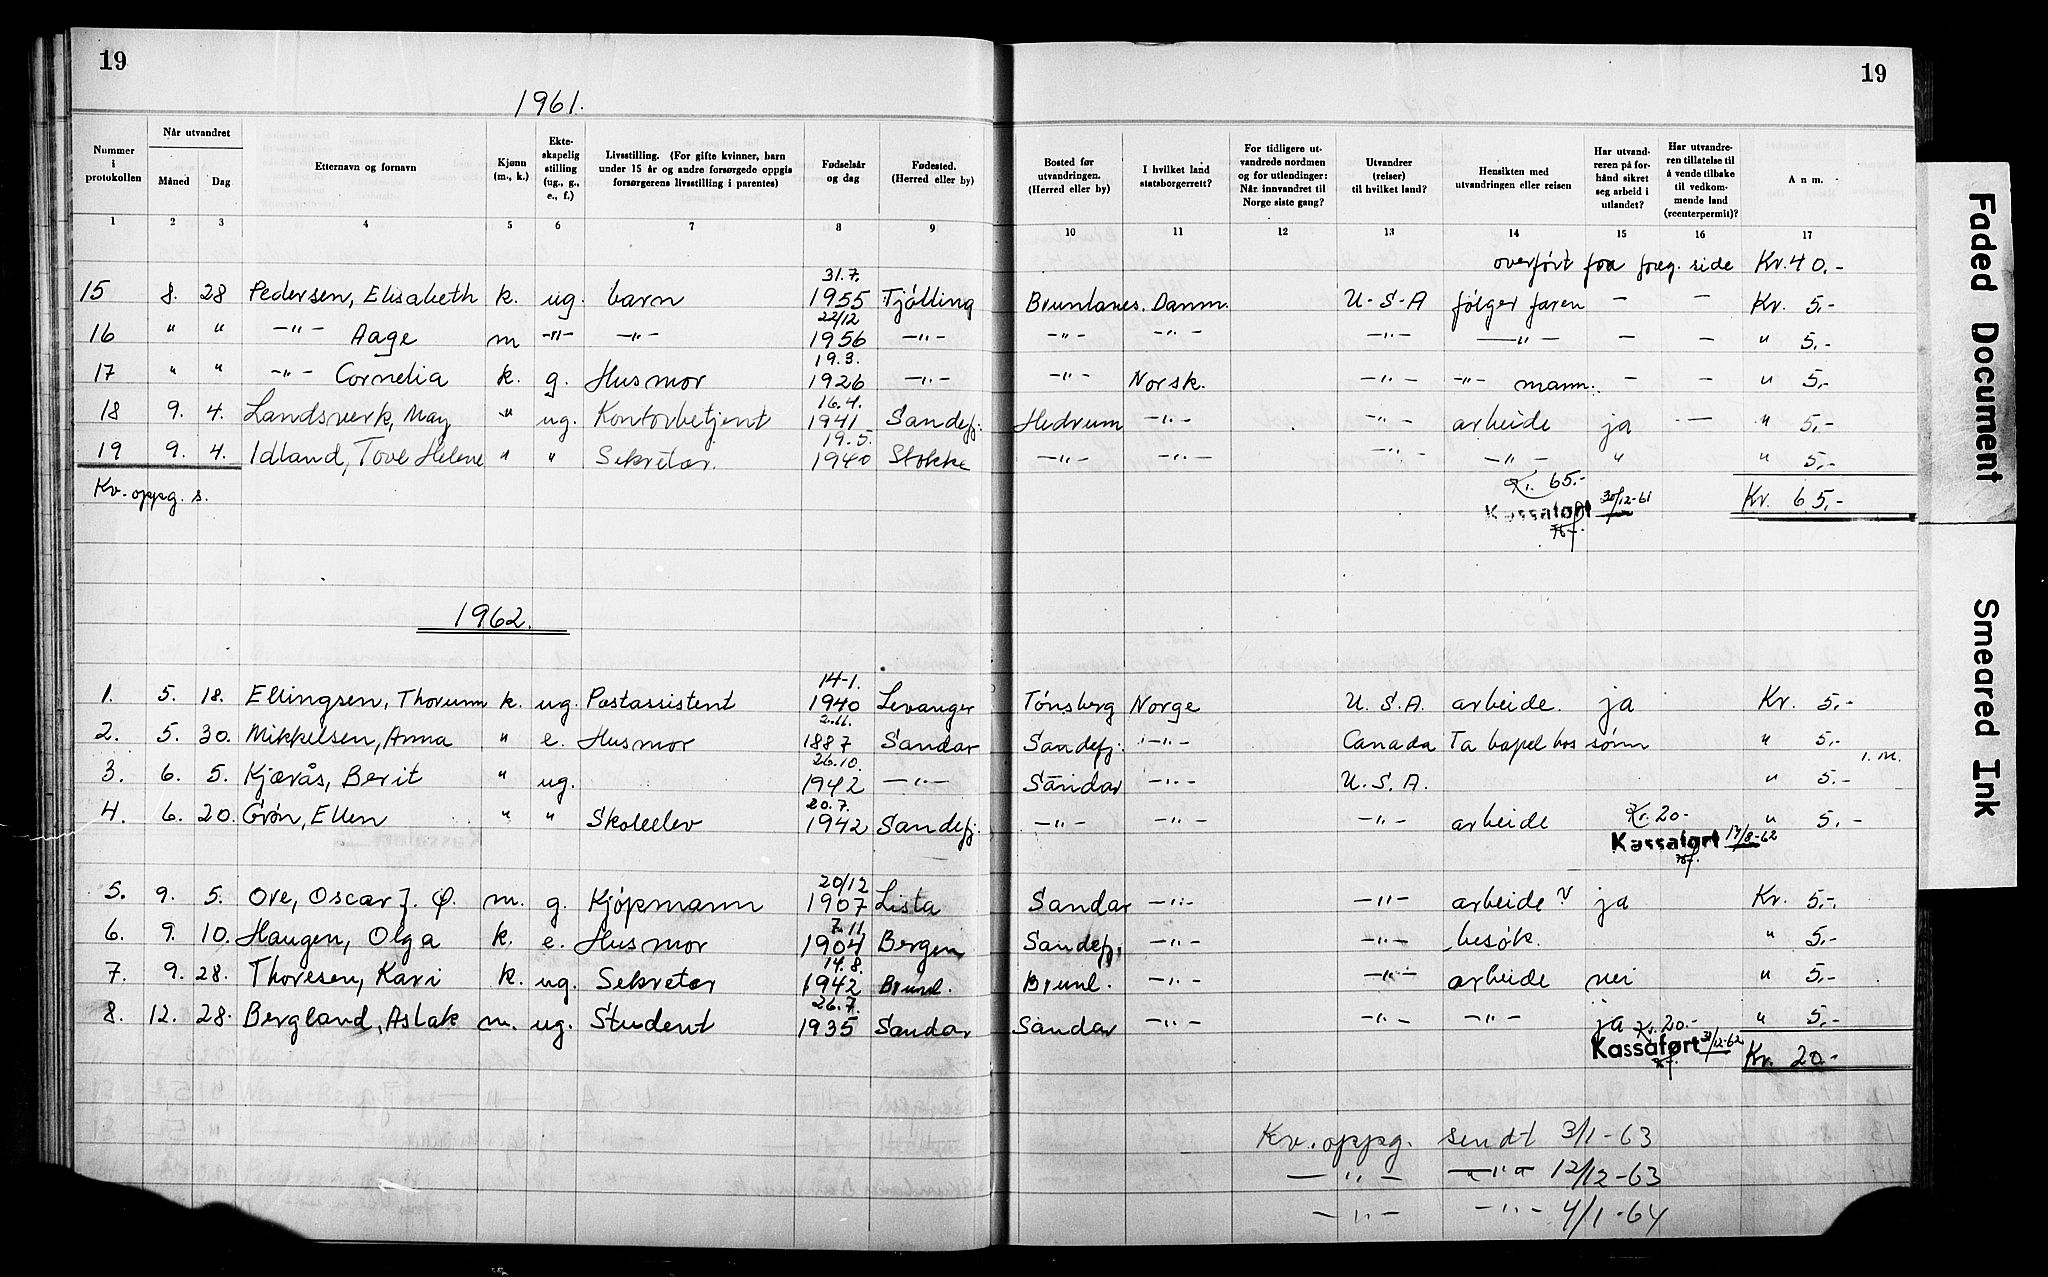 19
19
1961.
Nummer i protokollen
Når utvandret
Måned
Dag
Etternavn og fornavn
Kjønn (m., k.)
Ekteskapelig stilling (ug., g., e., f.)
Livsstilling. (For gifte kvinner, barn under 15 år og andre forsørgede oppgis forsørgerens livsstilling i parentes)
Fødselsår og dag
Fødested. (Herred eller by)
Bosted før utvandringen. (Herred eller by)
I hvilket land statsborgerrett?
For tidligere utvandrede nordmen og for utlendinger: Når innvandret til Norge siste gang?
Utvandrer (reiser) til hvilket land?
Hensikten med utvandringen eller reisen
Har utvandreren på forhånd sikret seg arbeid i utlandet?
Har utvandreren tillatelse til å vende tilbake til vedkommende land (reenterpermit)?
Anm.
1 2 3 4 5 6 7 8 9 10 11 12 13 14 15 16 17
overført fra foreg. side Kr. 40,-
15 8. 28 Pedersen, Elisabeth k. ug. barn 31.7. 1955 Tjølling Brunlanes. Danm. U-S-A følger faren - - Kr. 5,-
16 " " -"- Aage m -"- -"- 22/12 1956 -"- -"- -"- -"- -"- - - " 5,-
17 " " -"- Cornelia k. g. Husmor 19.3. 1926 -"- -"- Norsk. -"- -"- mann. - - " 5,-
18 9. 4. Landsverk, May " ug. Kontorbetjent 16.4. 1941 Sandefj. Hedrum -"- -"- arbeide ja - " 5,-
19 9. 4. Idland, Tove Helene " " Sekretær. 19.5. 1940 Stokke -"- -"- -"- -"- " " 5,-
Kv. oppg. s.
Kr. 65.-
Kassaført 30/12-61
Kr. 65,-
1962.
1. 5. 18. Ellingsen, Thorunn k. ug. Postassistent 14-1. 1940 Levanger Tønsberg Norge U.S.A. arbeide. ja Kr. 5,-
2. 5. 30. Mikkelsen, Anna " e. Husmor 2.11. 1887 Sandar Sandefj. -"- Canada Ta bopel hos sønn " 5,-
3. 6. 5. Kjærås, Berit " ug. 26.10. 1942 -"- Sandar -"- U.S.A. " 5.- 1.M.
4. 6. 20. Grøn, Ellen " " Skoleelev 20.7. 1942 Sandefj. -"- -"- -"- arbeide Kr. 20.- " 5,-
Kassaført 17/8-62
5. 9. 5. Ore, Oscar J. Ø. m. g. Kjøpmann 20/12 1907 Lista Sandar -"- -"- arbeide? ja Kr. 5,-
6. 9. 10. Haugen, Olga k. e. Husmor 7.11 1904 Bergen Sandefj. -"- -"- besøk. " 5,-
7. 9. 28. Thoresen, Kari k. ug. Sekretær 14.8. 1942 Brunl. Brunl. -"- -"- arbeide nei " 5,-
8. 12. 28. Bergland, Aslak m. ug. Student 26.7. 1935 Sandar Sandar -"- -"- -"- ja Kr. 20.- " 5,-
Kassaført 31/12-62
Kr. 20.-
Kv. oppg. sendt 3/1-63
-"- -"- 12/12-63
-"- -"- 4/1-64
Faded Document
Smeared Ink